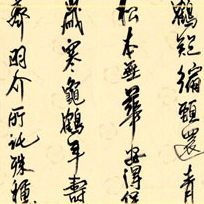 鶴疑縮頸還青
松本無華安得保
歲寒龜鶴年壽
齊羽介所託殊種